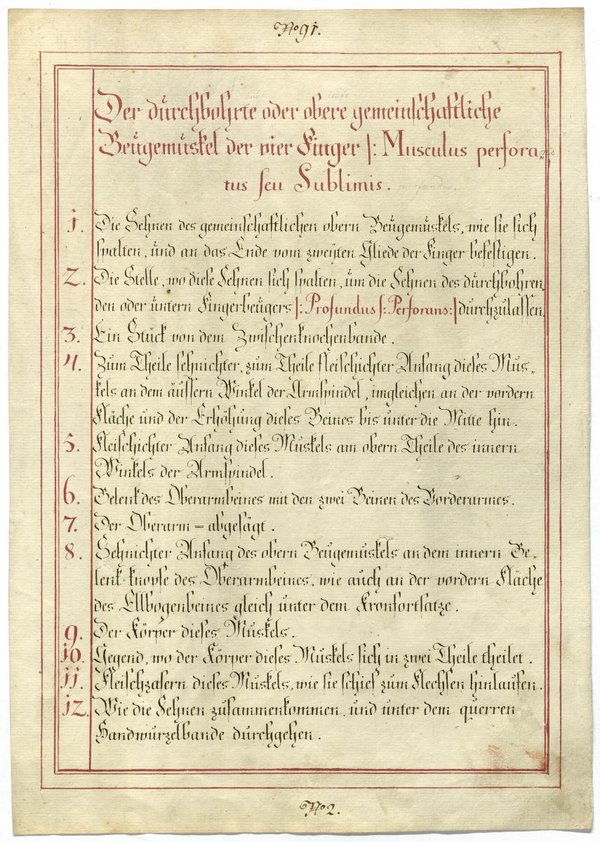 No 91.
Der durchbohrte oder obere gemeinschaftliche
Beugemuskel der vier Finger |: Musculus perfora-
tus seu Sublimis.
1. Die Sehnen des gemeinschaftlichen obern Beugemuskels, wie sie sich
spalten, und an das Ende vom zweyten Gliede der Finger befestigen.
2. Die Stelle, wo diese Sehnen sich spalten, um die Sehnen des durchbohren
den oder untern Fingerbeugers |: Profundus s: Perforans :| durchzulassen.
3. Ein Stück von dem Zwischenknochenbande.
4. Zum Theile sehnichter, zum Theile fleischichter Anfang dieses Mus-
kels an dem äussern Winkel der Armspindel, imgleichen an der vordern
Fläche und der Erhöhung dieses Beines bis unter die Mitte hin.
5. Fleischichter Anfang dieses Muskels am obern Theile des innern
Winkels der Armspindel.
6. Gelenk des Oberarmbeines mit den zwei Beinen des Vorderarmes.
7. Der Oberarm = abgesägt.
8. Sehnichter Anfang des obern Beugemuskels an dem innern Ge-
lenk-knopfe des Oberarmbeines, wie auch an der vordern Fläche
des Ellbogenbeines gleich unter dem Kronfortsatze.
9. Der Körper dieses Muskels.
10. Gegend, wo der Körper dieses Muskels sich in zwei Theile theilet.
11. Fleischzasern dieses Muskels, wie sie schief zum Flechsen hinlaufen.
12. Wie die Sehnen zusammenkommen, und unter dem querren
Handwurzelbande durchgehen.
No 2.